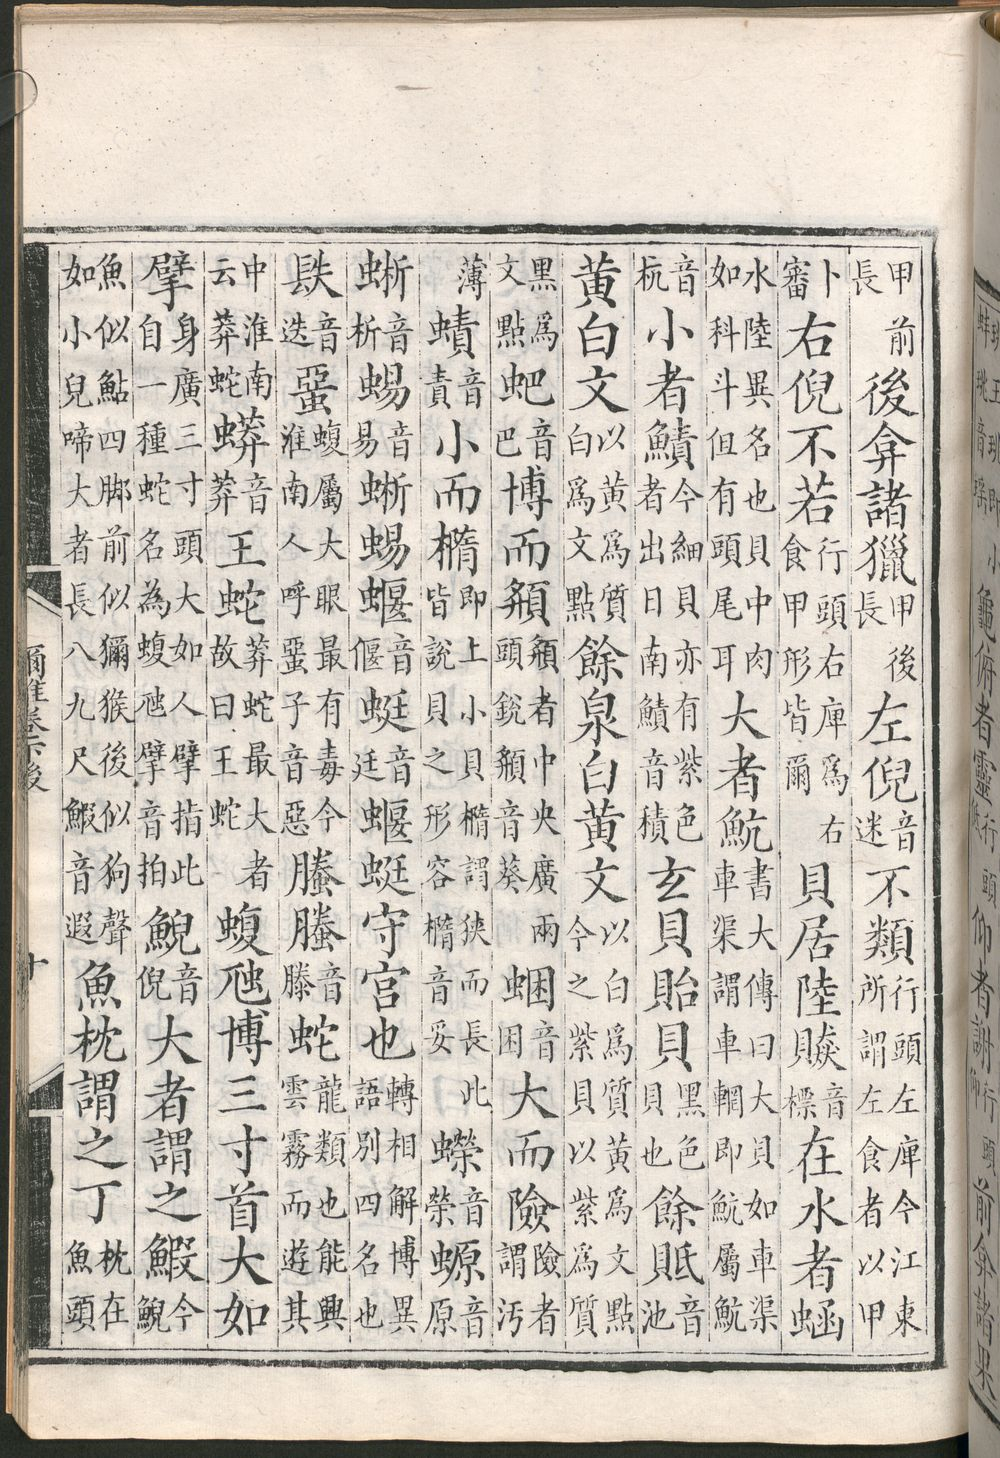 甲前長後弇諸獵甲後長左倪音迷不類行頭左庳今江東所謂左食者以甲
卜審右倪不若行頭右庳為右食甲形皆爾貝居陸贆音標在水者蜬
水陸異名也貝中肉如科斗但有頭尾耳大者魧書大傳曰大貝如車渠車渠謂車輞即魧屬魧
音杭小者鰿今細貝亦有紫色者出日南鰿音積玄貝貽貝黑色貝也餘貾音池
黃白文以黃為質白為文點餘泉白黃文以白為質黃為文點今之紫貝以紫為質
黑為文點蚆音巴博而頯頯者中央廣兩頭銳頯音葵蜠音囷大而險險者謂汚
薄蟦音責小而橢即上小貝橢謂狹而長此皆說貝之形容橢音妥蠑音榮螈音原
蜥音析蜴音易蜥蜴蝘音偃蜓音廷蝘蜓守宮也轉相解博異語別四名也
镻音迭蝁蝮屬大眼最有毒今淮南人呼蝁子音惡螣螣音滕蛇龍類也能興雲霧而遊其
中淮南云莽蛇蟒音莽王蛇莽蛇最大者故曰王蛇蝮虺博三寸首大如
擘身廣三寸頭大如人擘指此自一種蛇名為蝮虺擘音拍鯢音倪大者謂之鰕今鯢
魚似鮎四脚前似獼猴後似狗聲如小兒啼大者長八九尺鰕音遐魚枕謂之丁枕在魚頭
爾雅卷下後
十